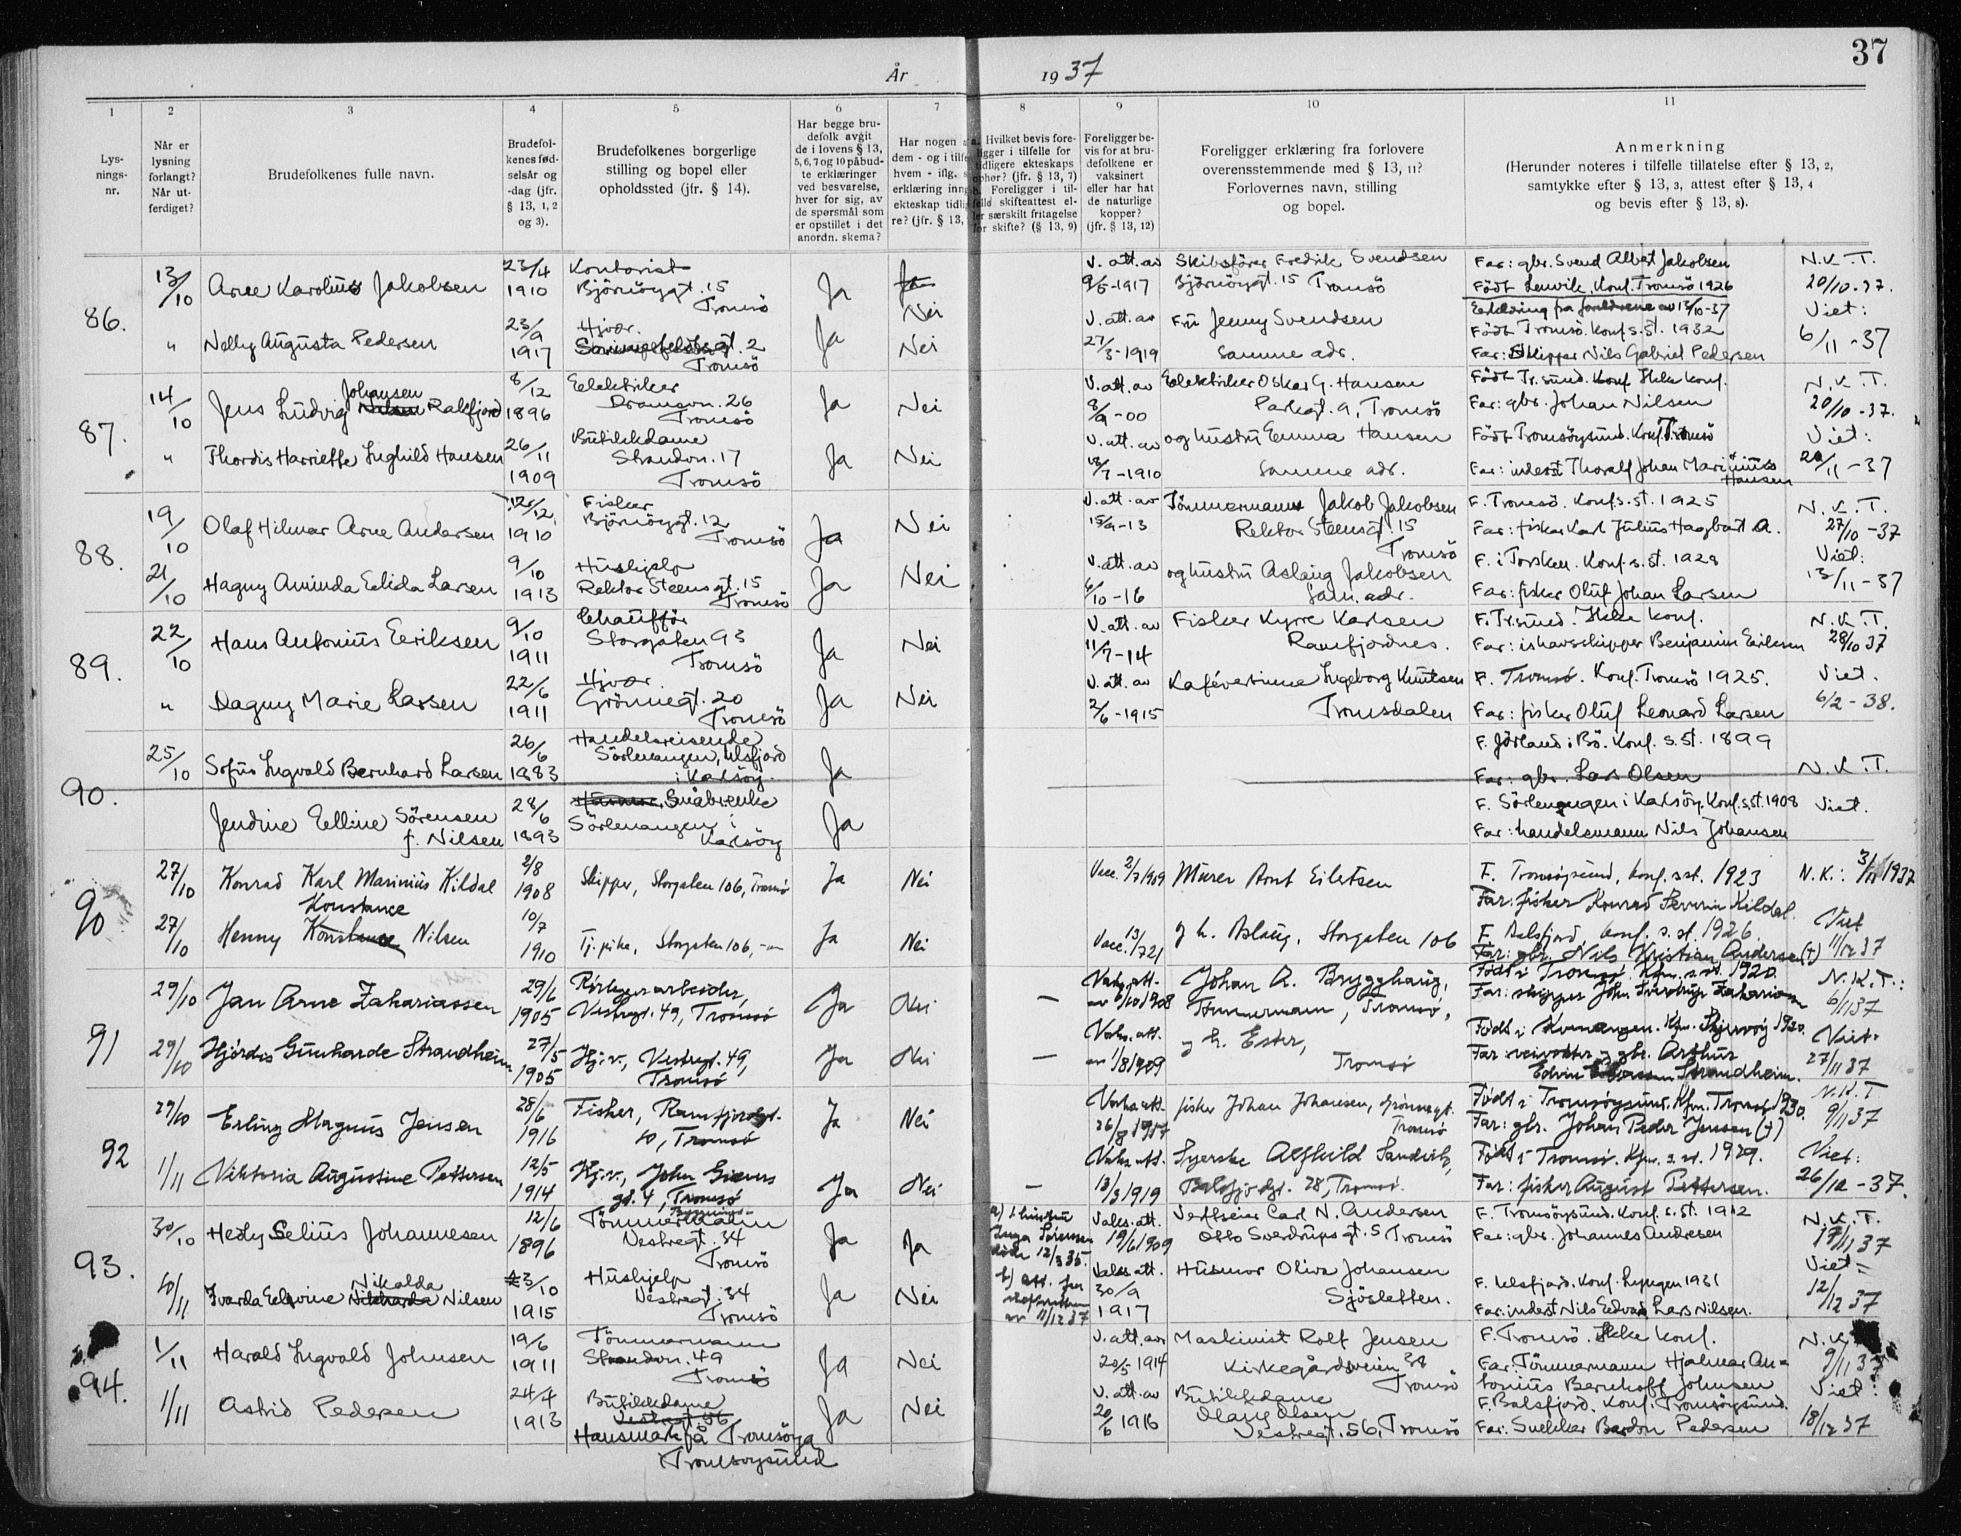 37
År 1937
1 2 3 4 5 6 7 8 9 10 11
Lys-
nings-
nr.
Når er
lysning
forlangt?
Når ut-
ferdiget?
Brudefolkenes fulle navn.
Brudefol-
kenes fød-
selsår og
-dag (jfr.
§ 13, 1, 2
og 3).
Brudefolkenes borgerlige
stilling og bopel eller
opholdssted (jfr. § 14).
Har begge bru-
defolk avgit
de i lovens § 13,
5, 6, 7 og 10 påbud-
te erklæringer
ved besvarelse,
hver for sig, av
de spørsmål som
er opstillet i det
anordn. skema?
Har nogen a
dem - og i tilfe
hvem - iflg. s
erklæring inng
ekteskap tidli
re? (jfr. § 13,
a. Hvilket bevis fore-
ligger i tilfelle for
tidligere ekteskaps
ophør? (jfr. § 13, 7)
b. Foreligger i til-
felle skifteattest el-
ler særskilt fritagelse
for skifte? (§ 13, 9)
Foreligger be-
vis for at bru-
defolkene er
vaksinert
eller har hat
de naturlige
kopper?
(jfr. § 13, 12)
Foreligger erklæring fra forlovere
overensstemmende med § 13, 11?
Forlovernes navn, stilling
og bopel.
Anmerkning
(Herunder noteres i tilfelle tillatelse efter § 13, 2,
samtykke efter § 13, 3, attest efter § 13, 4
og bevis efter § 13, 8).
86.
13/10 Arne Karolius Jakobsen 23/4 1910 Kontorist Björnöygt. 15 Tromsö Ja Ja Nei
V. att. av 9/5-1917 Skibsförer Fredrik Svendsen Björnöygt. 15 Tromsö
Far: gbr. Svend Albert Jakobsen
Födt Lenvik. Konf. Tromsö 1926
Erklæring fra foreldrene av 13/10-37
N.K.T. 20/10-37.
" Nelly Augusta Pedersen 23/9 1917 Hjvær. 2 Tromsö Ja Nei
V. att. av 27/3-1919 Fru Jenny Svendsen samme adr.
Födt Tromsö. Konf. s. st. 1932
Far: Skipper Nils Gabriel Pedersen
Viet: 6/11-37
87.
14/10 Jens Ludvig Johansen Nilsen Rakfjord 8/12 1896 Eelektriker Dramsvn. 26 Tromsö Ja Nei
V. att. av 8/9-00 Eelektriker Oskar G. Hansen Parkgt. 9, Tromsö
Födt Tr.sund. Konf. Ikke konf.
Far: gbr. Johan Nilsen
N.K.T. 20/10-37.
" Thordis Harriette Inghild Hansen 26/11 1909 Butikkdame Strandvn. 17 Tromsö Ja Nei
V. att. av 18/7-1910 og hustru Emma Hansen samme adr.
Födt Tromsöysund. Konf. Tromsö
Far: inderst Thoralf Johan Marinius Hansen
Viet: 20/11-37
88.
19/10 Olaf Hilmar Arne Andersen 26/12 1910 Fisker Björnöygt. 12 Tromsö Ja Nei
V. att. av 15/9-13 Tömmermann Jakob Jakobsen Rektor Steensgt. 15 Tromsö
F. Tromsö. Konf. s. st. 1925
Far: fisker Karl Julius Hagbart A.
N.K.T. 27/10-37
21/10 Hagny Aminda Eelida Larsen 9/10 1913 Hushjelp Rektor Steensgt. 15 Tromsö Ja Nei
V. att. av 6/10-16 og hustru Aslaug Jakobsen Sam. adr.
F. i Torsken. Konf. s. st. 1928
Far: fisker Oluf Johan Larsen
Viet: 13/11-37
89.
22/10 Hans Antonius Eeriksen 9/10 1911 Chaufför Storgaten 93 Tromsö Ja Nei
V. att. av 11/7-14 Fisker Kyrre Karlsen Ramfjordnes.
F. Tr.sund. Ikke konf.
Far: ishavsskipper Benjamin Eeriksen
N.K.T. 28/10 37
" Dagny Marie Larsen 22/6 1911 Hjvær Grönnegt. 20 Tromsö Ja Nei
V. att. av 2/6-1915 Kafévertinne Ingeborg Knutsen Tromsdalen
F. Tromsö. Konf. Tromsö 1925.
Far: fisker Oluf Leonard Larsen
Viet. 6/2-38.
90.
25/10 Sofus Ingvald Bernhard Larsen 26/6 1883 Handelsreisende Sörlenangen, Ulsfjord i Karlsöy. Ja
F. Jörland i Bö. Konf. s. st. 1899
Far: gbr. Lars Olsen
N.K.T.
Jendine Eelline Sörensen f. Nilsen 28/6 1893 Småbruker Sörlenangen i Karlsöy Ja
F. Sörlenangen i Karlsöy. Konf. s. st. 1908
Far: handelsmann Nils Johansen
Viet.
90
27/10 Konrad Karl Marinius Kildal 2/8 1908 Skipper, Storgaten 106, Tromsø Ja Nei
Vacc. 2/7 1919 Murer Arnt Eilertsen
F. Tromsøysund, konf. s. st. 1923
Far: fisker Konrad Severin Kildal.
N.K.: 3/11 1937
27/10 Henny Konstance Konstanse Nilsen 10/7 1910 Tj.pike, Storgaten 106, Ja Nei
Vacc. 13/7 21 g h. Aslaug, Storgaten 106
F. Balsfjord, konf. s. st. 1926.
Far: gbr. Nils Kristian Andersen (+)
Viet 11/12 37
91
29/10 Jan Arne Zakariassen 29/6 1905 Rörleggerarbeider, Vestregt. 49, Tromsø Ja Nei
— Vaks. att. av 6/10 1908 Johan A. Brygghaug, Tømmermann, Tromsø,
Født i Tromsø. Kfm. s. st. 1920.
Far: skipper John Sverdrup Zakariassen
N.K.T.: 6/11 37
29/10 Hjördis Gunharde Strandheim 27/5 1905 Hj.v., Vestregt. 49, Tromsø Ja Nei
— Vaks. att. av 1/8 1909 g h. Ester, Tromsø
Født i Kvænangen. Kfm. Skjervøy 1920.
Far: veivokter og gbr. Arthur
Edvin Strandheim.
Viet: 27/11 37
92
29/10 Erling Magnus Jensen 28/6 1916 Fisher, Ramfjordgt. 10, Tromsø Ja Nei
Vaks. att. 26/8 1917 fisker Johan Johansen, Grønnegt. Tromsø
Født i Tromsøysund. Kfm. Tromsø 1930.
Far: gbr. Johan Peder Jensen (+)
N.K.T 9/11 37
1/11 Viktoria Augustine Pettersen 12/5 1914 Hj.v., John Giævers gt. 4, Tromsø Ja Nei
— Vaks. att. 13/3 1919 Syerske Alfhild Sandvik, Balsfjordgt. 28, Tromsø.
Født i Tromsø. Kfm. s. st. 1929.
Far: fisker August Pettersen.
Viet: 26/12-37.
93.
30/10 Hedly Selius Johannesen 12/6 1896 Bygnings- Tömmermann Vestregt. 34 Tromsö Ja Ja
a) 1. hustru Inga Sörensen döde 12/3 35.
Vaks. att. 19/6 1909 Verftseier Carl N. Andersen Otto Sverdrups gt. 5 Tromsö
F. Tromsöysund. Konf. s. st. 1912
Far: gbr. Johannes Andresen
N.K.T. 17/11 37
10/11 Ivarda Eelvine Nikolda Nilsen 3/10 1915 Hushjelp Vestregt. 34 Tromsö Ja Nei
b) att. fra skifteretten av 11/12 37
Vaks. att. 30/9 1917 Husmor Oliva Johansen Sjösletten.
F. Ulsfjord. Konf. Lyngen 1931
Far: inderst Nils Edvard Lars Nilsen.
Viet = 12/12 37
94.
1/11 Harald Ingvald Johnsen 19/6 1911 Tömmermann Strandvn. 49 Tromsö Ja Nei
V. att. av 20/5 1914 Maskinist Rolf Jensen Kirkegårdsveien 38 Tromsö
F. Tromsö. Ikke konf.
Far: Tömmermann Hjalmar An-
tonius Bernhoff Johnsen
N.K. 9/11 37
1/11 Astrid Pedersen 24/4 1913 Butikkdame Vestregt. 56 Hansmark på Tromsöya Tromsöysund Ja Nei
V. att. av 20/6 1916 Butikkdame Olaug Olsen Vestregt. 56, Tromsö
F. Balsfjord. Konf. Tromsöysund.
Far: Snekker Bardon Pedersen
Viet: 18/12 37